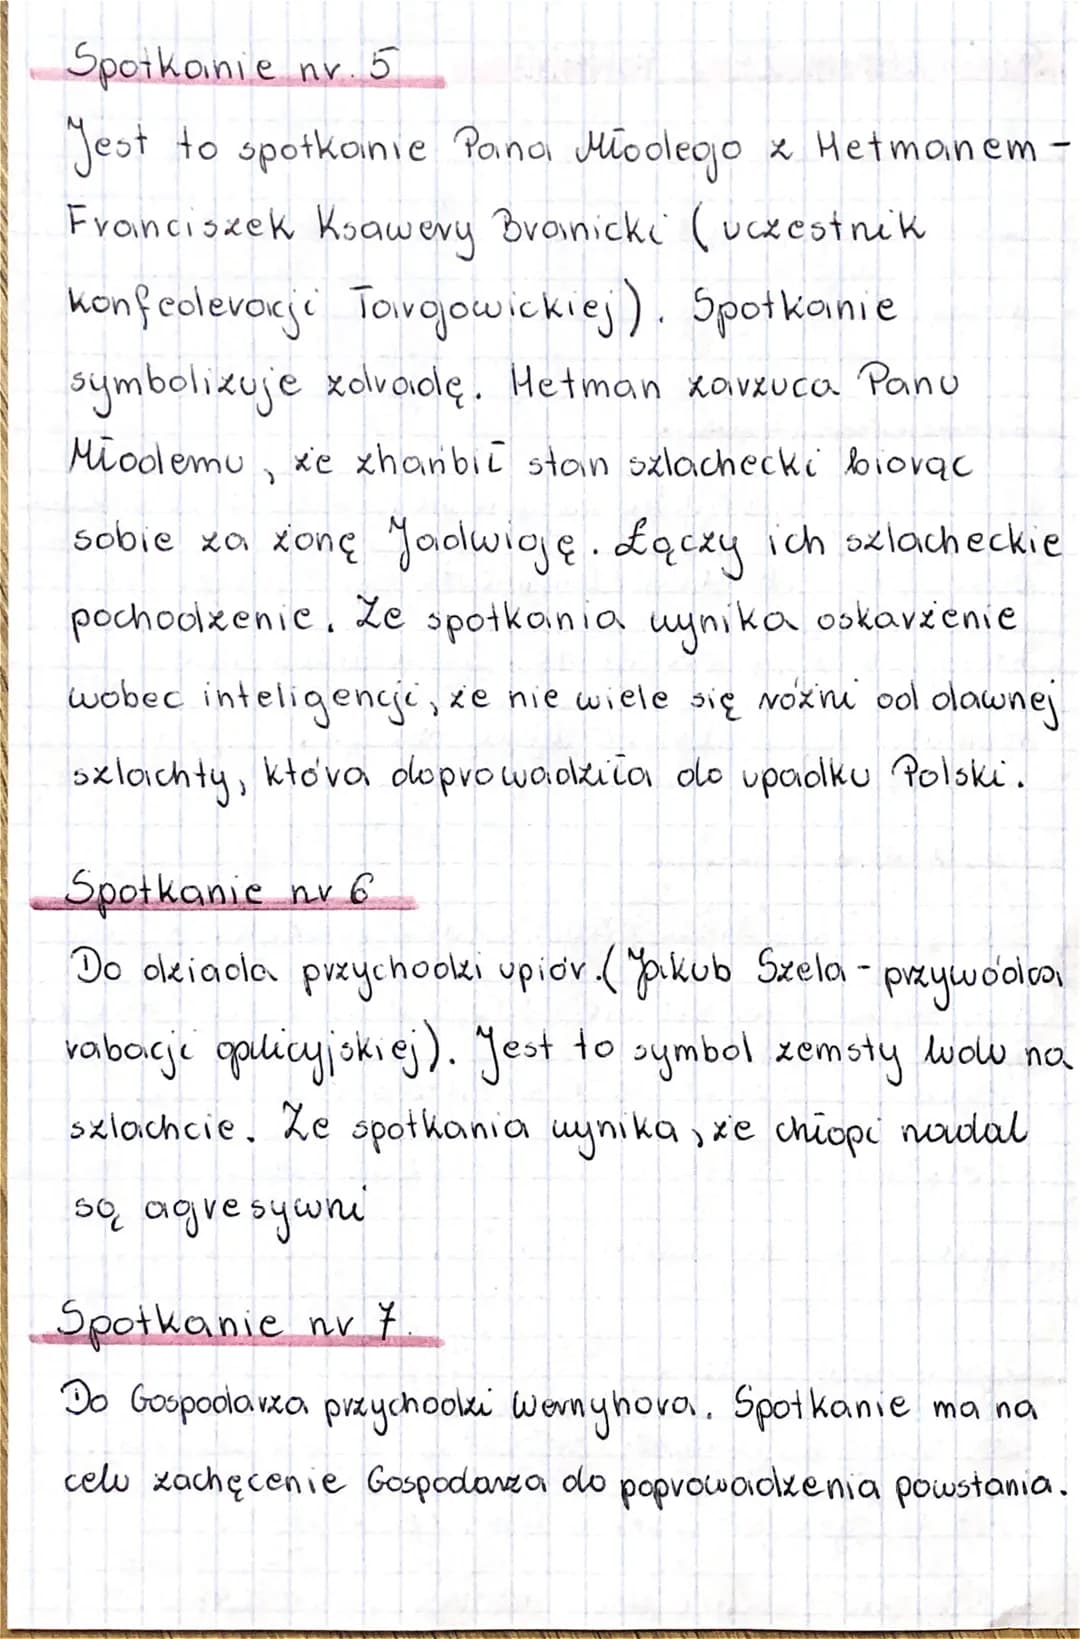 Spotkanie nr. 5
Jest to spotkanie Pana Młodego z Hetmanem -
Franciszek Ksawery Branicki (uczestnik
konfederacji Targowickiej). Spotkanie
symbolizuje zdradę. Hetman zarzuca Panu
Młodemu, że zhańbił stan szlachecki biorąc
sobie za żonę Jadwigę. Łączy ich szlacheckie
pochodzenie. Ze spotkania wynika oskarżenie
wobec inteligencji, że nie wiele się różni od dawnej
szlachty, która doprowadziła do upadku Polski.
Spotkanie nr 6
Do dziada przychodzi upiór.(Jakub Szela - przywódca
rabacji galicyjskiej). Jest to symbol zemsty ludu na
szlachcie. Ze spotkania wynika, że chłopi nadal
są agresywni
Spotkanie nr 7.
Do Gospodarza przychodzi Wernyhora. Spotkanie ma na
celu zachęcenie Gospodarza do poprowadzenia powstania.